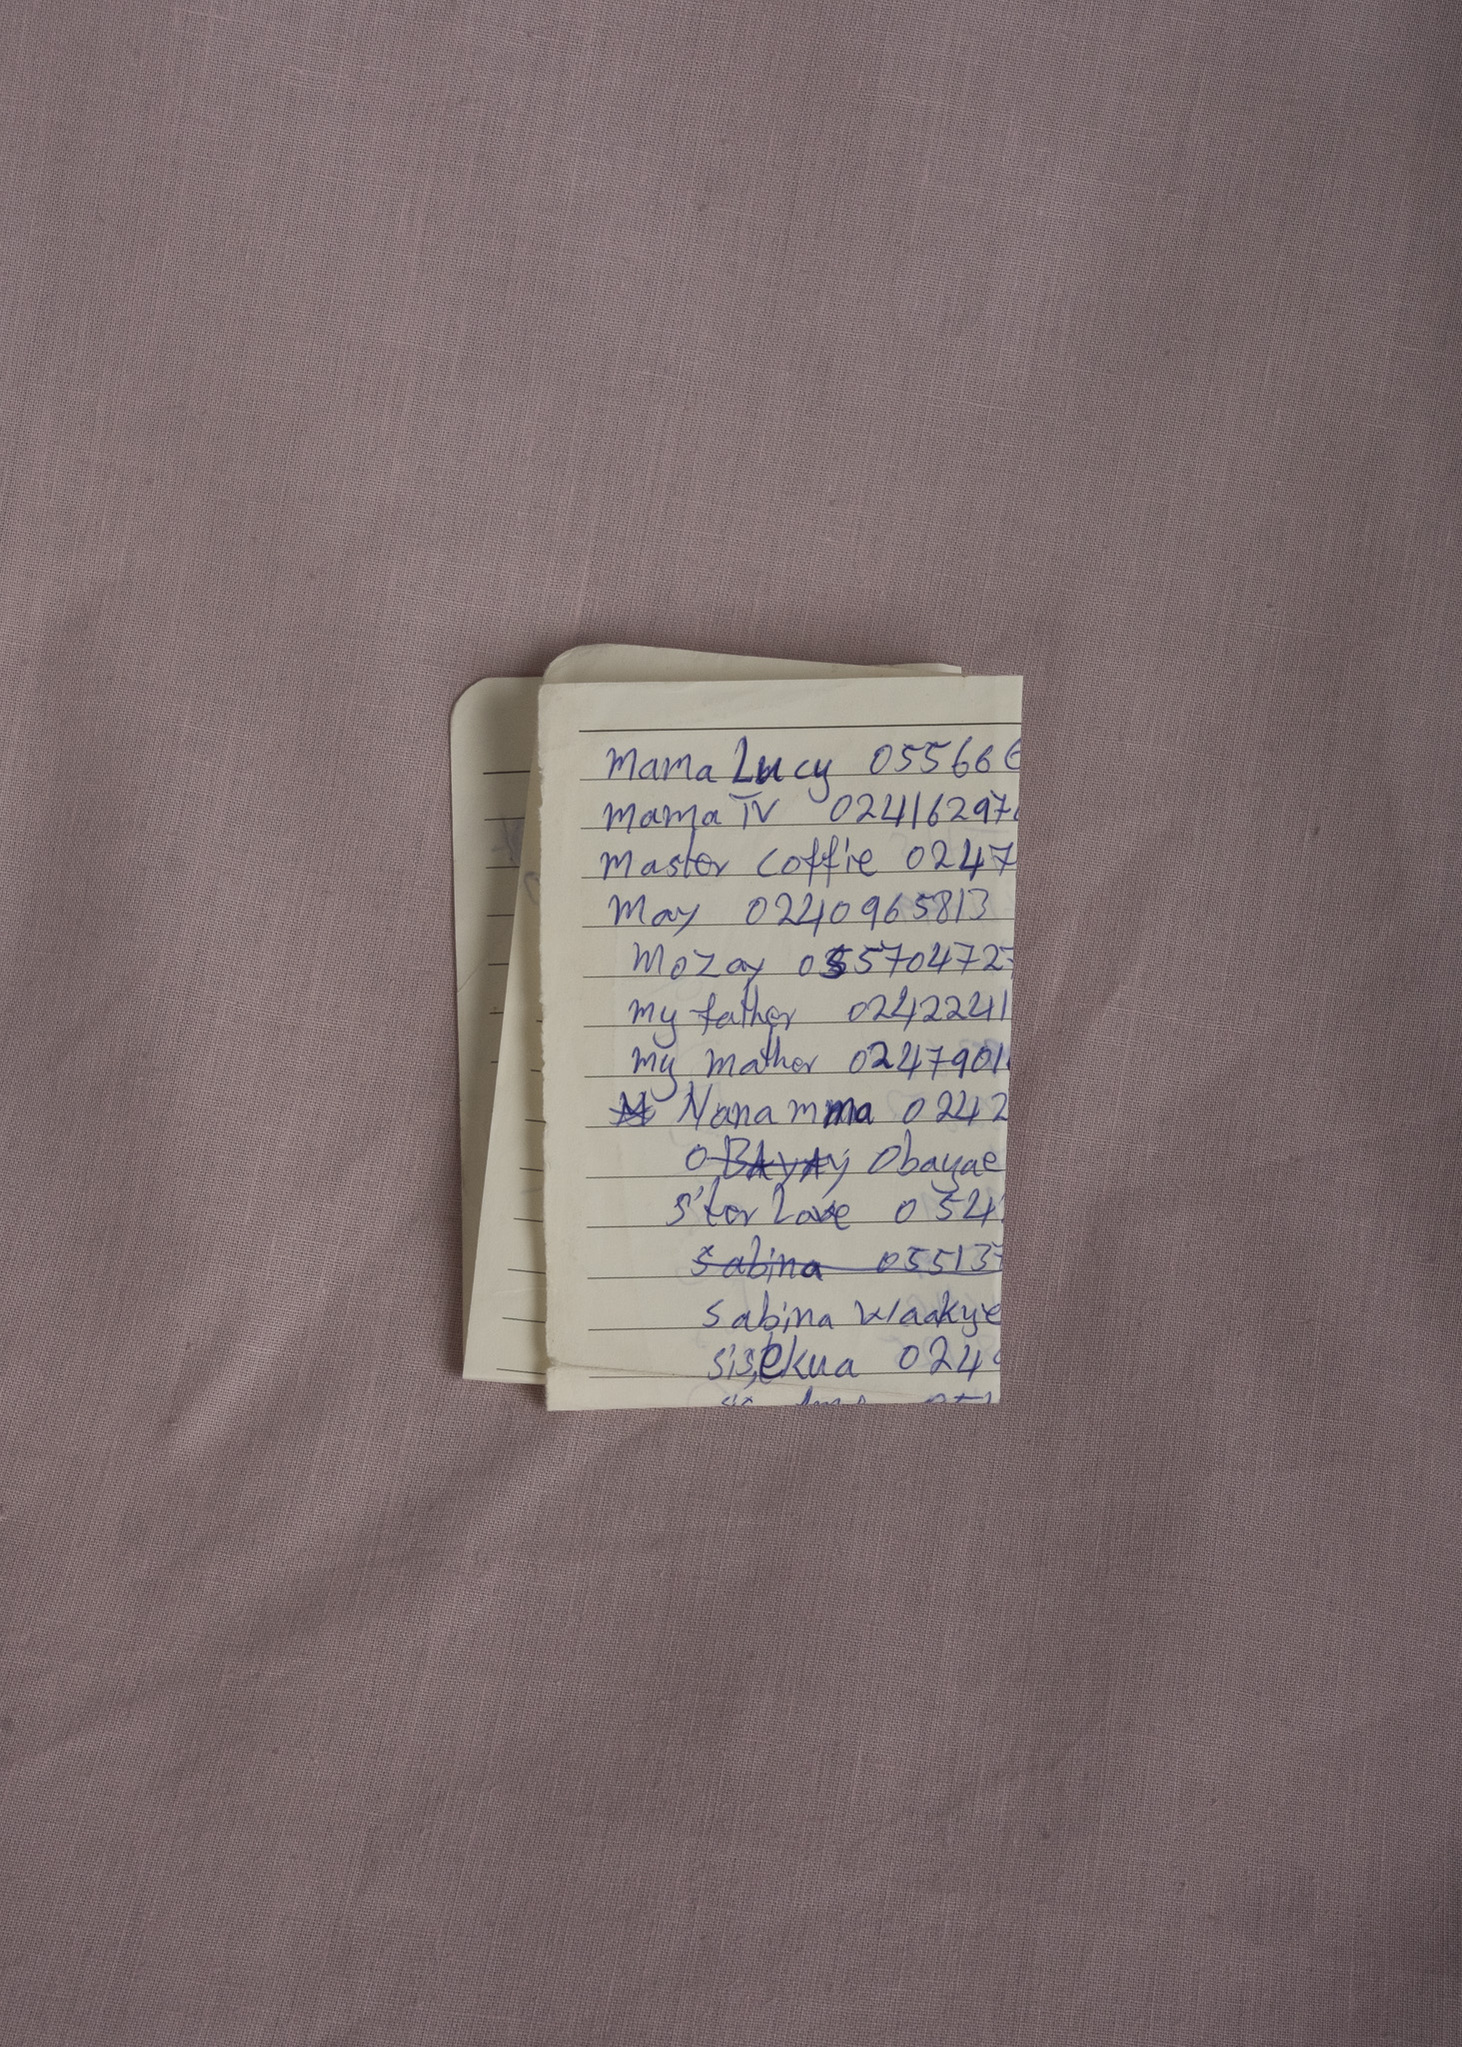 Mama Lucy 055666
Mama TV 02416297
Master Coffie 0247
May 0240965813
Mozay 055704727
My father 02422241
My mather 0247901
Nanamma 0242
Obayae
S'ter Love 054
Sabina 055137
Sabina Waakye
Sis, Ekua 024